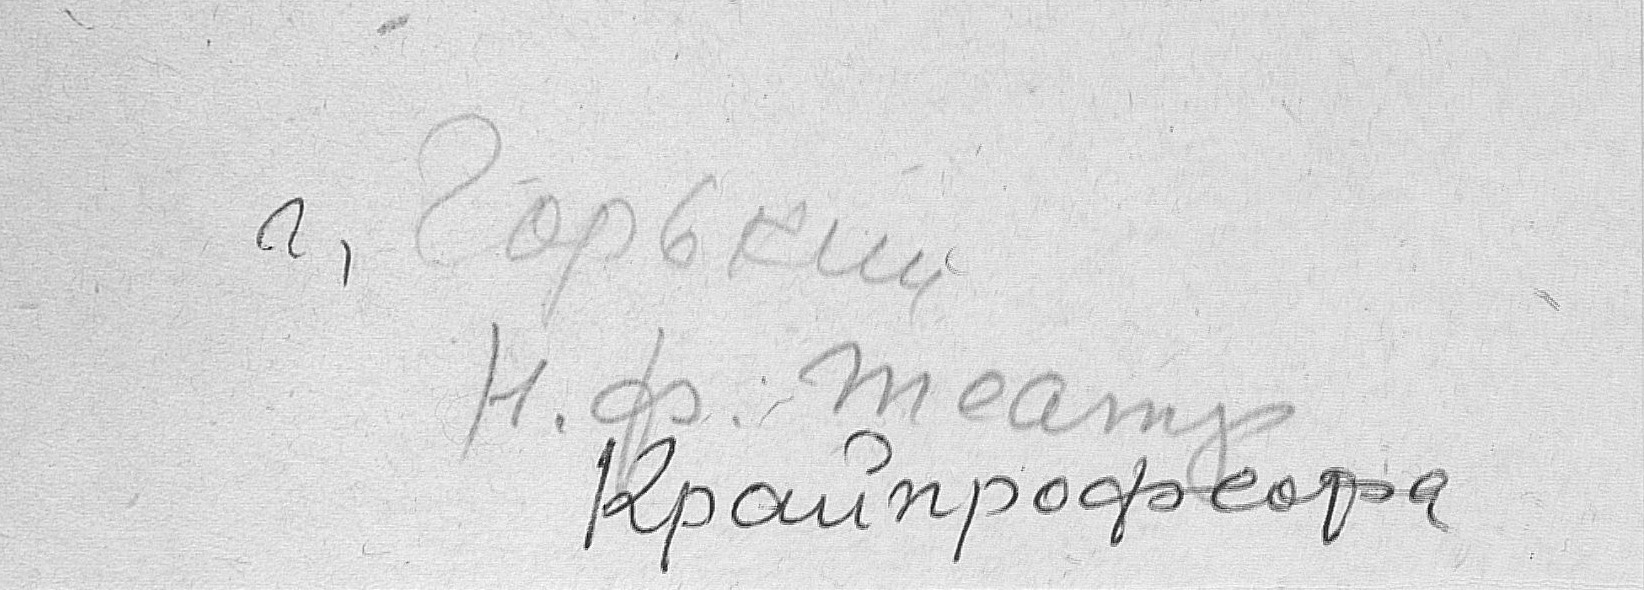 г, Горький
Н.ф. театр
Крайпрофсофа